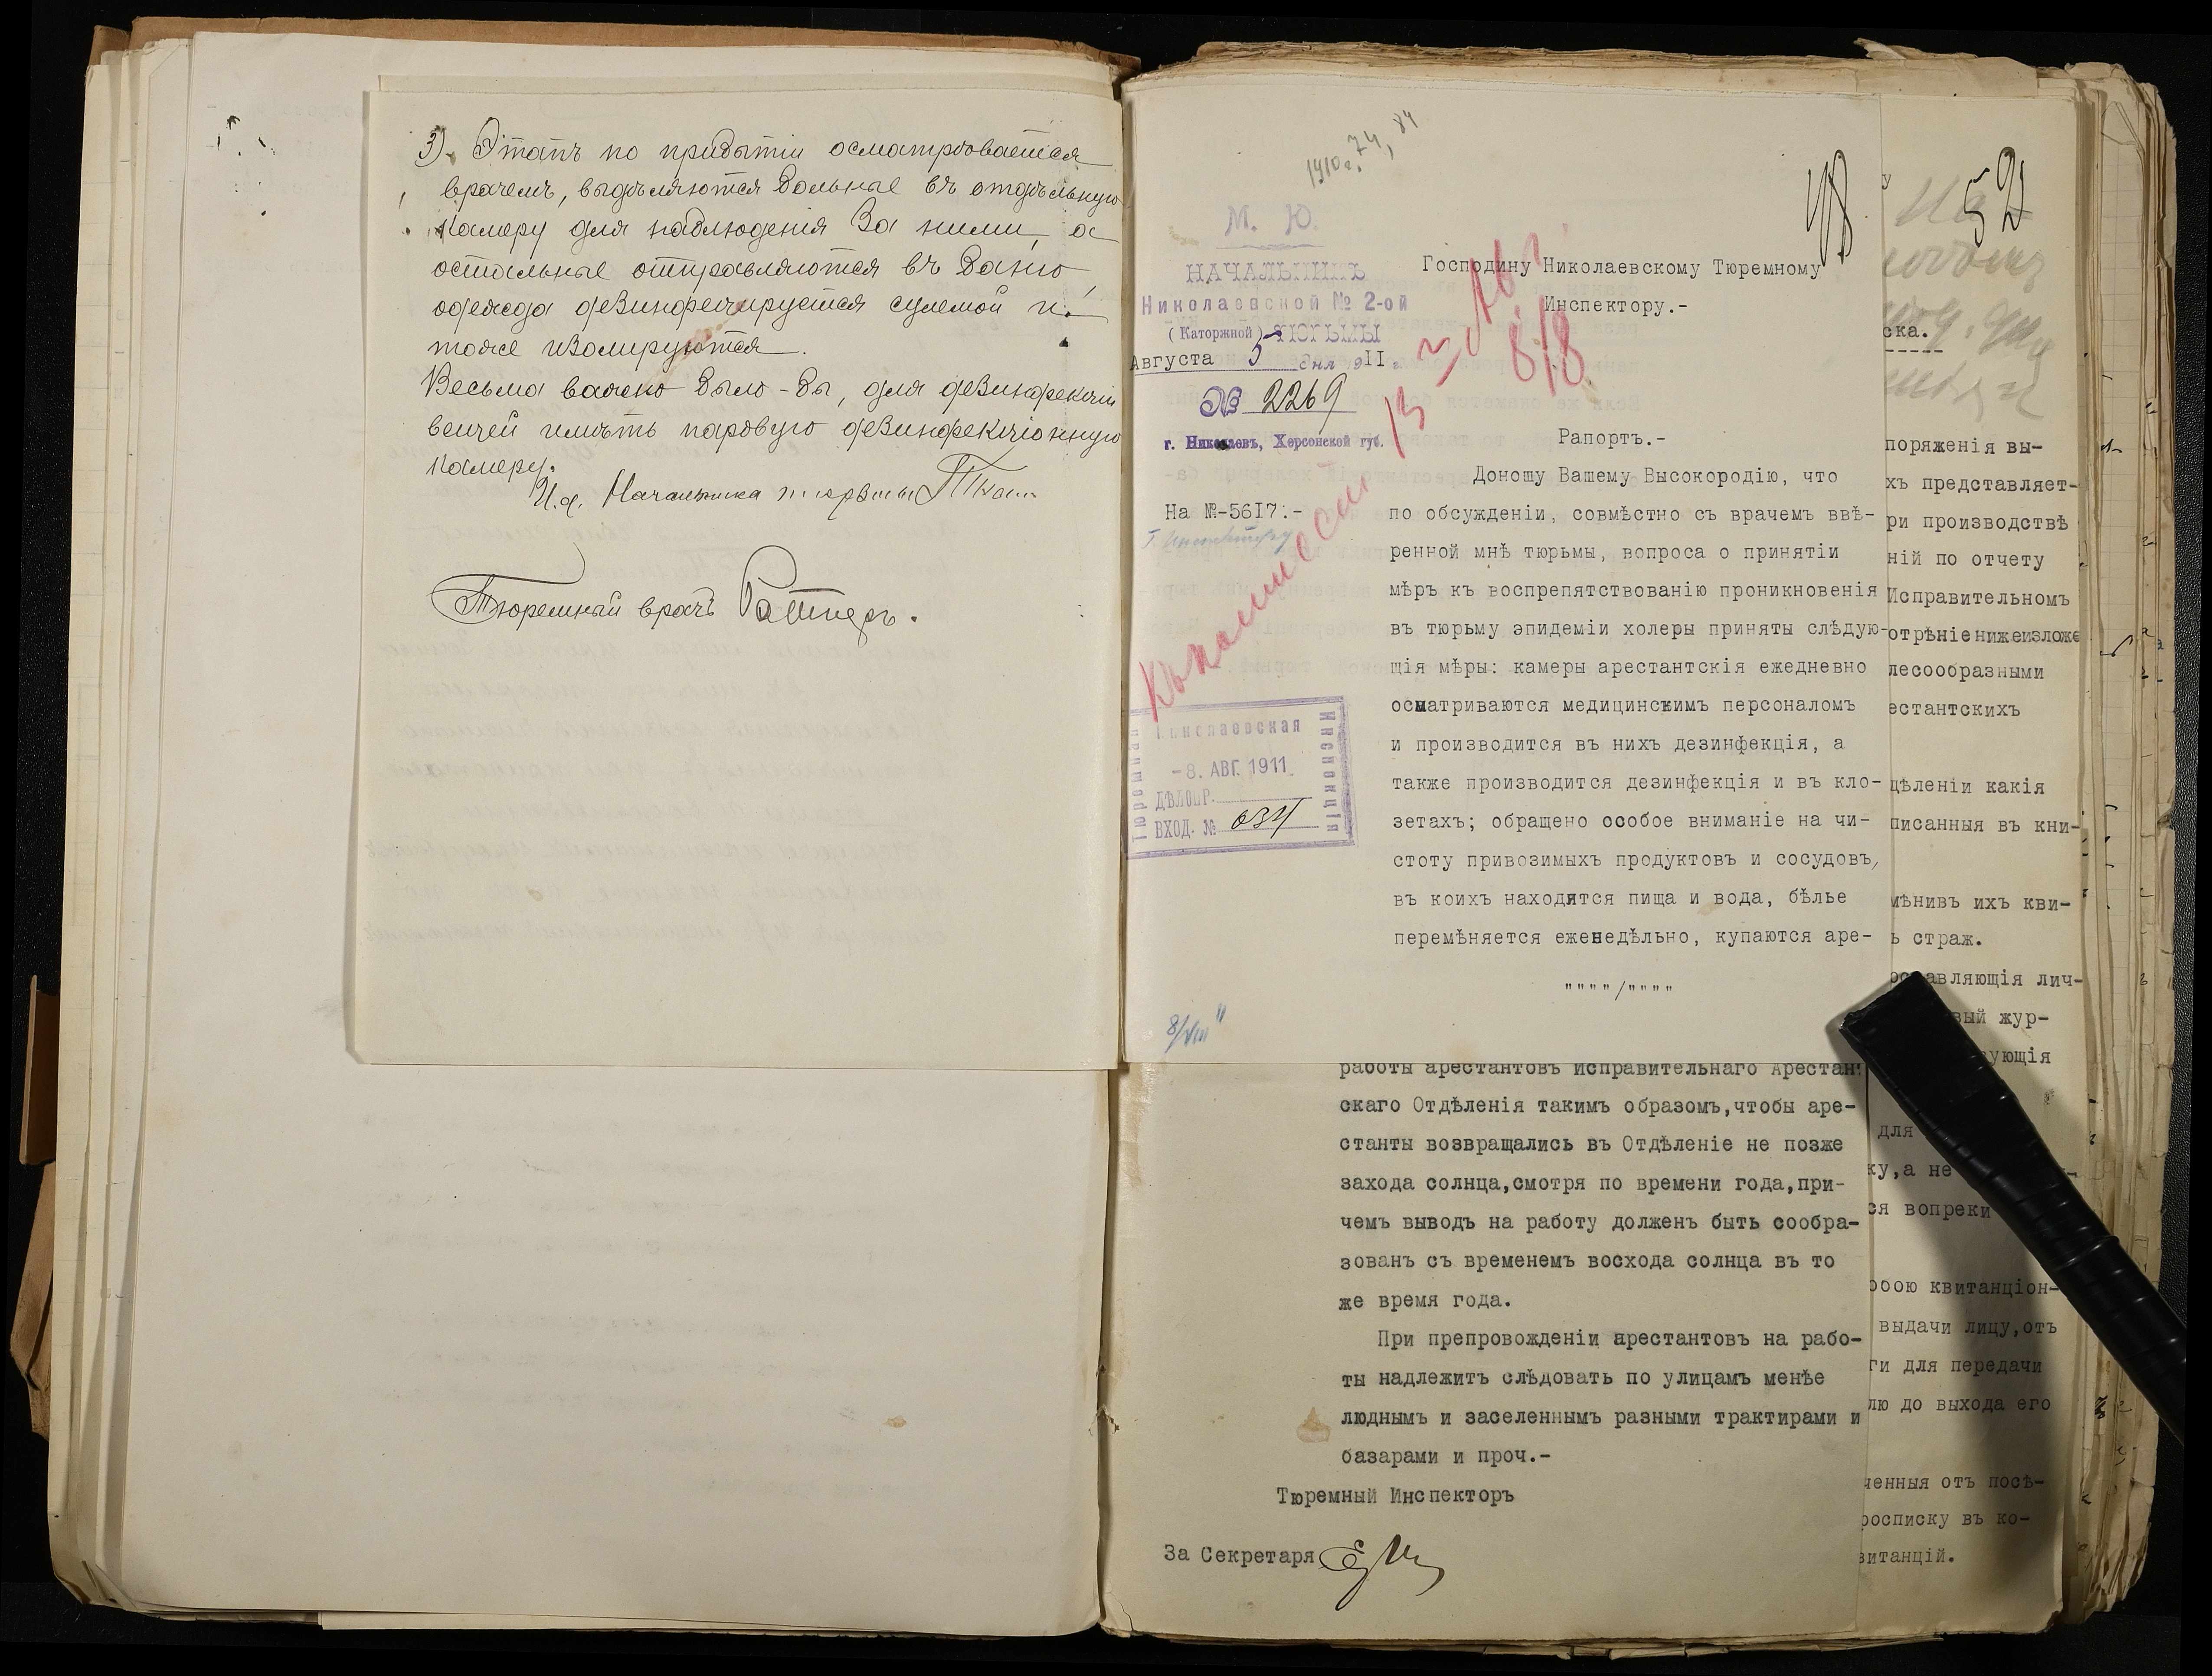 3). Этапъ по прибытіи осматривается
врачемъ, выдѣляются больные въ отдѣльную
камеру для наблюденія за ними, а
остальные отправляются въ баню
одежда дезинфецируется сулемой и
тоже изолируются.
Весьма важно было-бы, для дезинфекціи
вещей имѣть паровую дезинфекціонную
камеру.
И.д. Начальника тюрьмы
Тюремный врачъ
1910 г. 74, 84
М. Ю.
НАЧАЛЬНИКЪ
Николаевской № 2-ой
(Каторжной) ТЮРЬМЫ
Августа 5 дня 1911 г.
№ 2269
г. Николаевъ, Херсонской губ.
На №-5617.-
Николаевская
Тюремная
Инспекція
-8. АВГ. 1911
ДѢЛОПР.
ВХОД. № 634
8/VIII
Господину Николаевскому Тюремному
Инспектору.-
Рапортъ.-
Доношу Вашему Высокородію, что
по обсужденіи, совмѣстно съ врачемъ ввѣ-
ренной мнѣ тюрьмы, вопроса о принятіи
мѣръ къ воспрепятствованію проникновенія
въ тюрьму эпидеміи холеры приняты слѣдую-
щія мѣры: камеры арестантскія ежедневно
осматриваются медицинскимъ персоналомъ
и производится въ нихъ дезинфекція, а
также производится дезинфекція и въ кло-
зетахъ; обращено особое вниманіе на чи-
стоту привозимыхъ продуктовъ и сосудовъ,
въ коихъ находятся пища и вода, бѣлье
перемѣняется еженедѣльно, купаются аре-
""""/""""
работы арестантовъ Исправительнаго Арестант
скаго Отдѣленія такимъ образомъ,чтобы аре-
станты возвращались въ Отдѣленіе не позже
захода солнца,смотря по времени года,при-
чемъ выводъ на работу долженъ быть сообра-
зованъ съ временемъ восхода солнца въ то
же время года.
При препровожденіи арестантовъ на рабо-
ты надлежитъ слѣдовать по улицамъ менѣе
люднымъ и заселеннымъ разными трактирами и
базарами и проч.-
Тюремный Инспекторъ
За Секретаря
52
ска.
поряженія вы-
хъ представляет-
ри производствѣ
ній по отчету
Исправительномъ
отрѣніе нижеизложе
лесообразными
естантскихъ
дѣленіи какія
писанныя въ кни-
мѣнивъ ихъ кви-
ь страж.
оставляющія лич-
вый жур-
вующія
для
ку,а не
ся вопреки
обою квитанціон-
выдачи лицу,отъ
ги для передачи
лю до выхода его
ченныя отъ посѣ-
росписку въ ко-
витанцій.